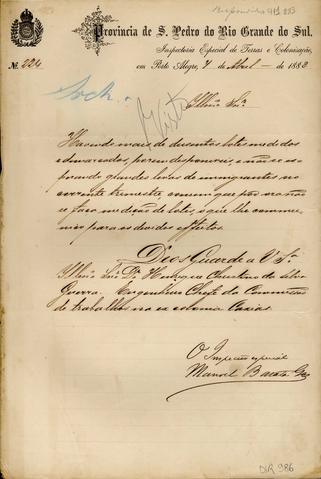 Provincia de S. Pedro do Rio Grande do Sul.
Inspectoria Especial de Terras e Colonisação,
Nº 224 em Porto Alegre, 4 de Abril de 1883
Illmo Snr.
Havendo mais de duzentos lotes medidos
e demarcados, porem desponiveis, e não se es-
perando grandes levas de immigrantes no
corrente trimestre, convem que por ora não
se faça medição de lotes, o que lhe commu-
nico para os devidos effeitos.
Deos Guarde a V. Sª
Illmo Snr Dr Henrique Christino da Silva
Guerra. Engenheiro Chefe da Commissão
de trabalhos na ex colonia Caxias.
O Inspector especial
Manoel
DIR 986